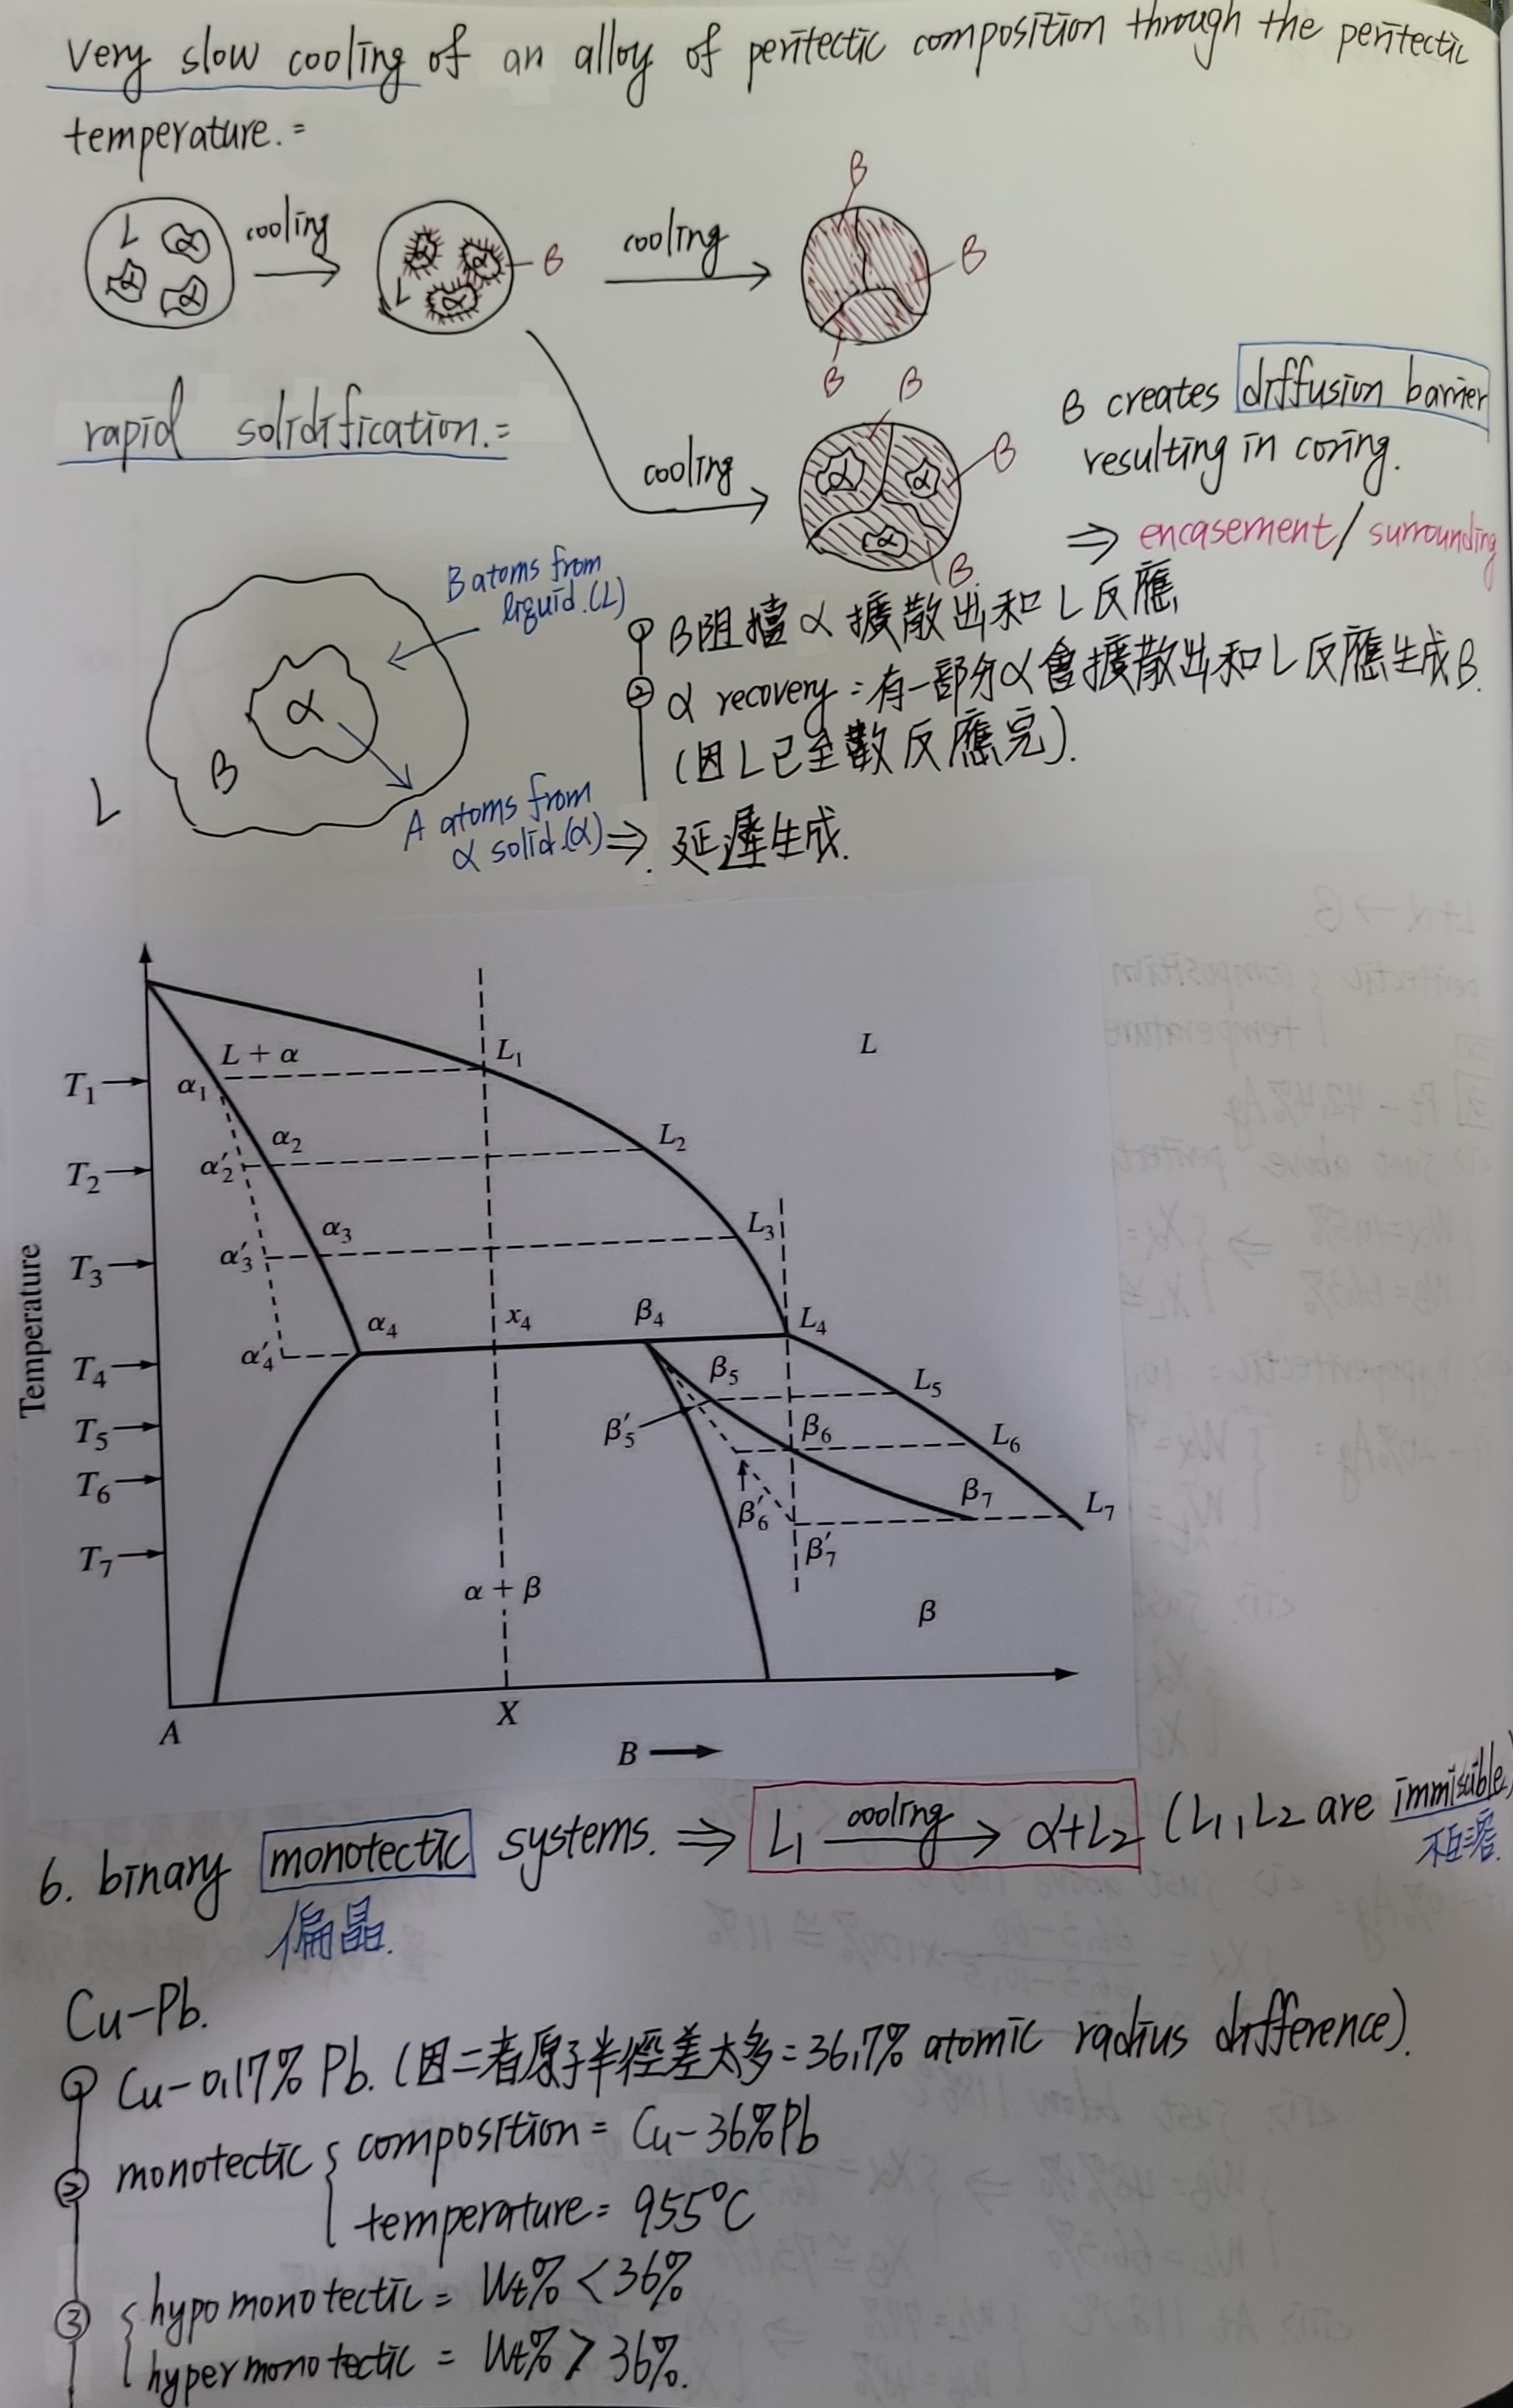 very slow cooling of an alloy of peritectic composition through the peritectic
temperature.=
L α α α cooling α α α L β cooling β β β
rapid solidification.= cooling α α α β β β
β creates diffusion barrier
resulting in coring.
⇒ encasement/surrounding
B atoms from
liquid.(L)
α
β
L
A atoms from
α solid.(α)
① β阻擋α擴散出和L反應
② α recovery=有一部分α會擴散出和L反應生成β.
(因L已全數反應完).
⇒ 延遲生成.
Temperature
L + α L₁ L
T₁ α₁
α₂ L₂
T₂ α′₂
α₃ L₃
T₃ α′₃
α₄ x₄ β₄ L₄
T₄ α′₄
β₅ L₅
T₅ β′₅
β₆ L₆
T₆ β′₆
β₇ L₇
T₇ β′₇
α + β β
A X
B
6. binary monotectic systems. ⇒ L₁ cooling → α+L₂ (L₁, L₂ are immiscible)
偏晶.
Cu-Pb.
① Cu-0.17% Pb. (因二者原子半徑差太多=36.7% atomic radius difference).
② monotectic { composition = Cu-36%Pb
temperature = 955°C
③ { hypomonotectic = Wt% < 36%
hypermonotectic = Wt% > 36%.